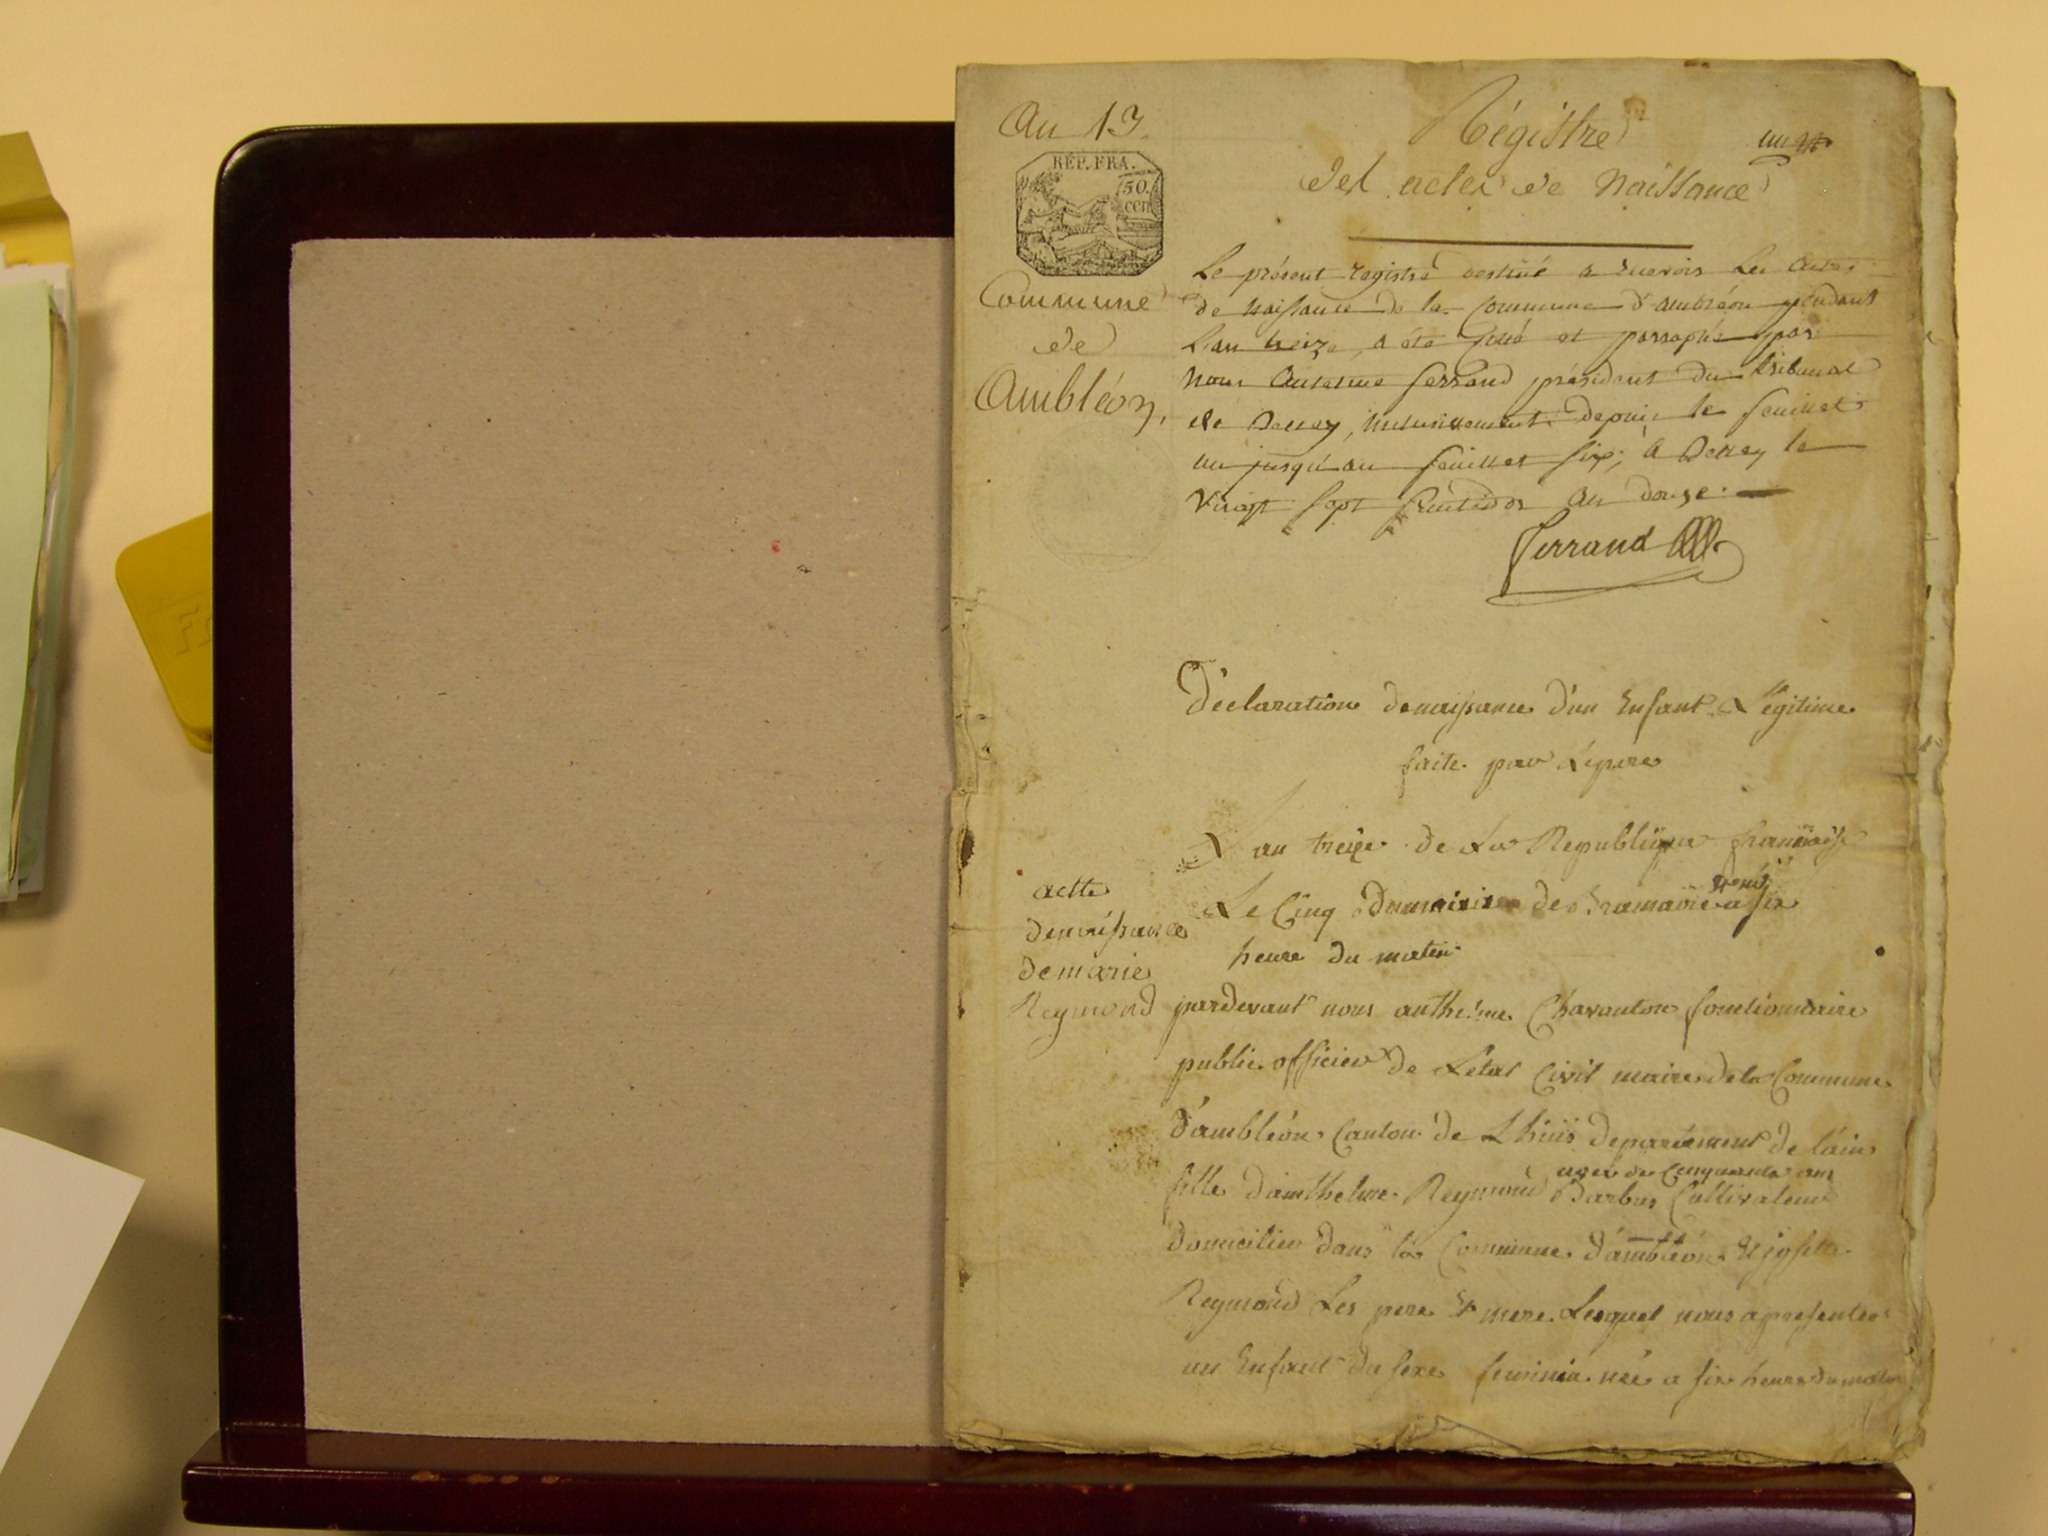 An 13.
RÉP. FRA.
50.
cen
Commune
de
Ambléon,
Régistre
un
des actes de Naissance
Le présent registre destiné a recevoir les actes
de naissance de la commune d'ambléon pendant
L'an treize, a été cotté et paraphé par
Nous Antelme ferrand président du tribunal
de Belley, depuis le feuillet
un jusqu'au feuillet six, a Belley le
vingt sept fructidor an douze.
Ferrand
Déclaration denaissance d'un Enfant Légitime
faite par Lepere
L'an treize de La Republique française
Le Cinq de a six
heure du matin
acte
denaissance
demarie
Reymond
pardevant nous anthelme Chavanton fonctionnaire
public officier de Létat Civil maire dela Commune
d'ambléon Canton de Lhuis departement de lain
agée de Cinquante ans
fille d'anthelme Reymond Barbus Cultivateur
domicilie dans la Commune d'ambléon
Reymond Les pere & mere Lesquel nous apresenter
un Enfant du sexe feminin née a six heure du matin